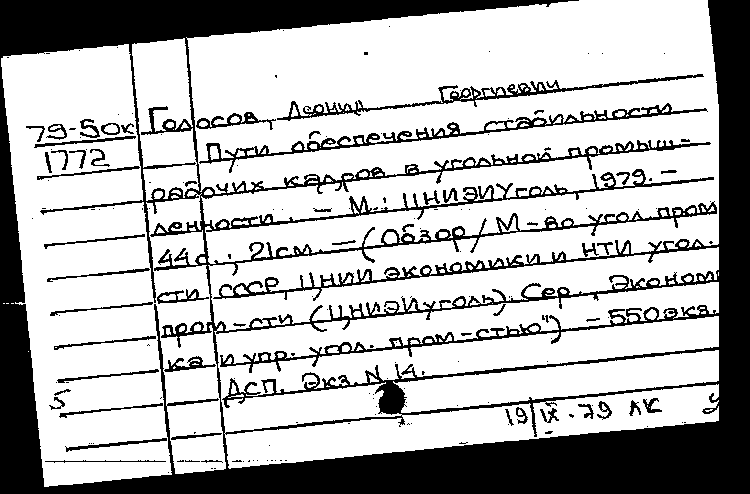 79-50к Голосов, Леонид Георгиевич
1772 Пути обеспечения стабильности
рабочих кадров в угольной промыш-
ленности. – М.: ЦНИЭИуголь, 1979. –
44 с.; 21 см. – (Обзор / М-во угол. пром
сти СССР, ЦНИИ экономики и НТИ угол.
пром-сти (ЦНИЭИуголь). Сер., Эконом
ка и упр. угол. пром-стью") – 550 экз.
5 ДСП. Экз. N 14.
19/IX-79 ЛК